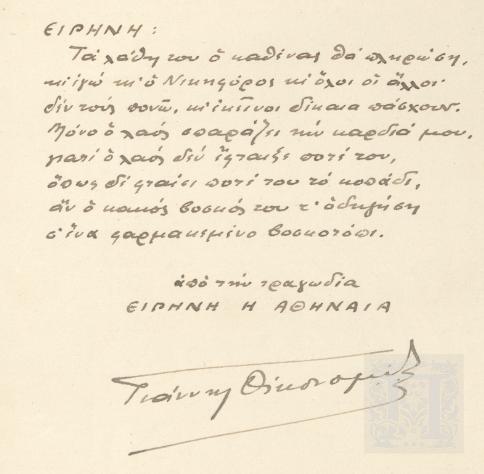 ΕΙΡΗΝΗ:
Τὰ λάθη του ὁ καθένας θὰ πληρώση,
κι' ἐγὼ κι' ὁ Νικηφόρος κι' ὅλοι οἱ ἄλλοι·
δὲν τοὺς πονῶ, κι' ἐκεῖνοι δίκαια πάσχουν.
Μόνο ὁ λαὸς σπαράζει τὴν καρδιά μου,
γιατὶ ὁ λαὸς δὲν ἔφταιξε ποτέ του,
ὅπως δὲ φταίει ποτέ του τὸ κοπάδι,
ἂν ὁ κακὸς βοσκός του τ' ὁδηγήση
σ' ἕνα φαρμακεμένο βοσκοτόπι.
ἀπὸ τὴν τραγωδία
ΕΙΡΗΝΗ Η ΑΘΗΝΑΙΑ
Γιάννης Οἰκονομίδης